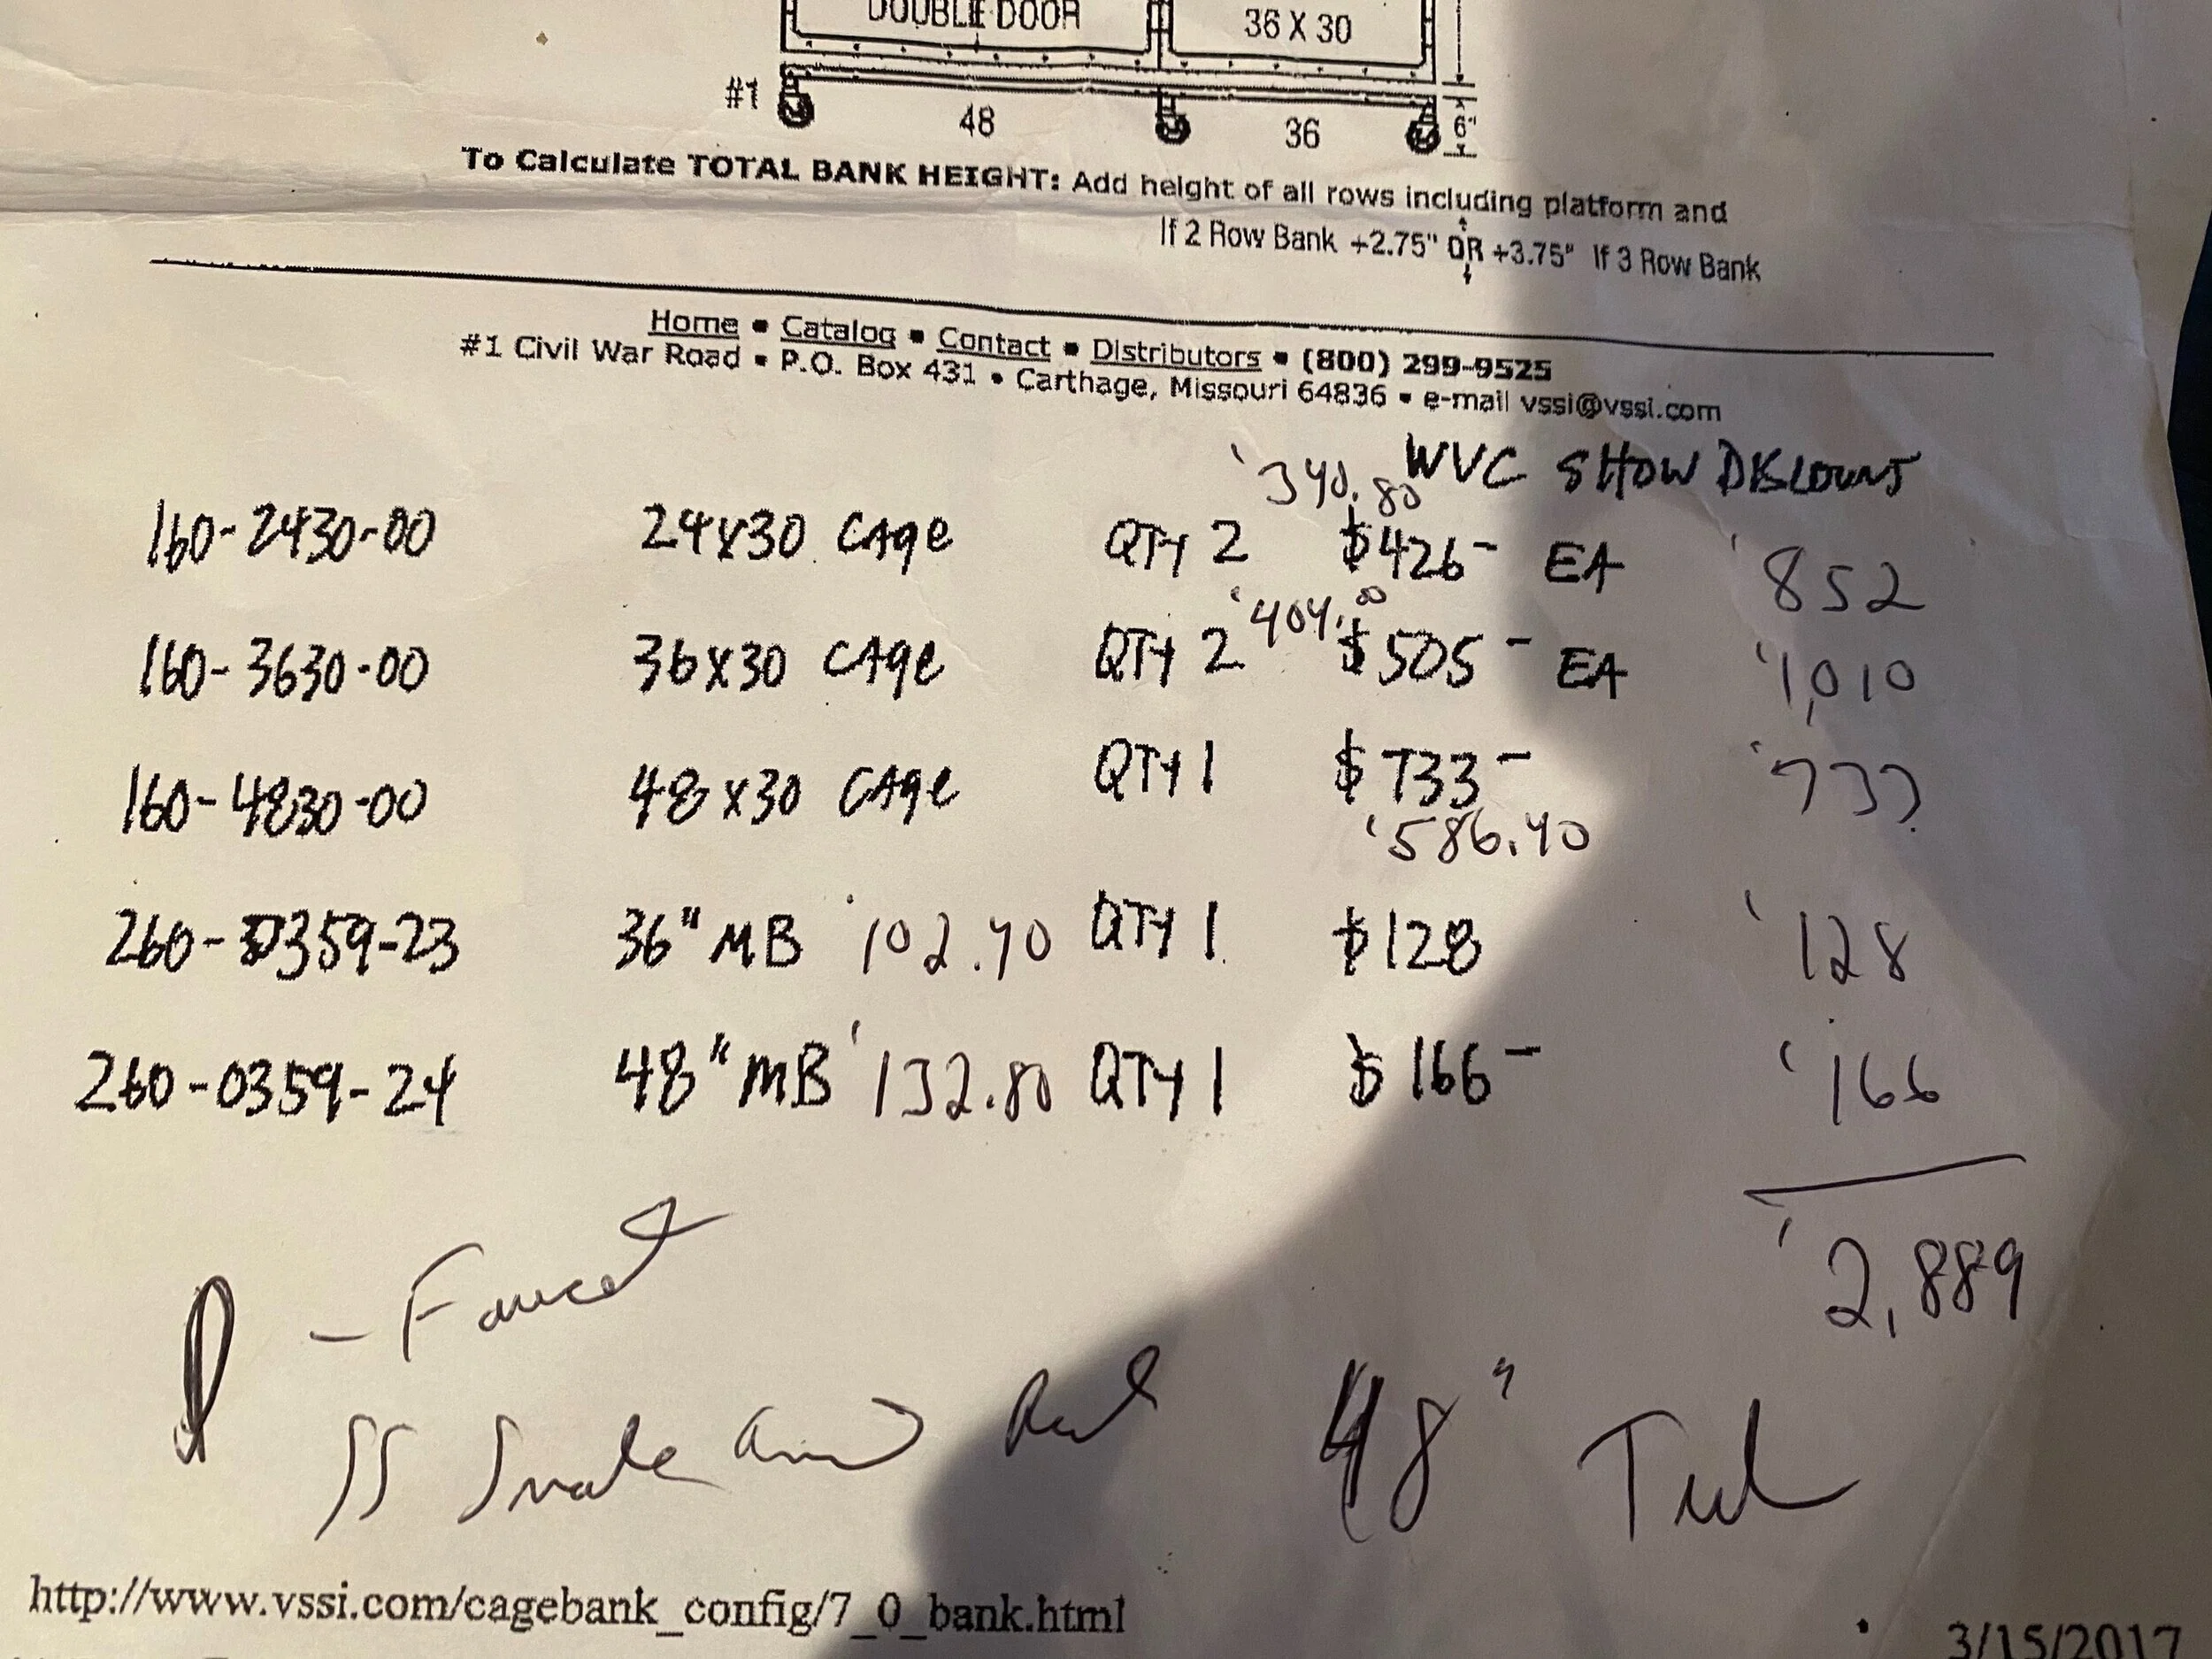 DOUBLE DOOR 36 X 30
#1 48 36 6"
To Calculate TOTAL BANK HEIGHT: Add height of all rows including platform and
If 2 Row Bank +2.75" OR +3.75" If 3 Row Bank
Home ▪ Catalog ▪ Contact ▪ Distributors ▪ (800) 299-9525
#1 Civil War Road ▪ P.O. Box 431 ▪ Carthage, Missouri 64836 ▪ e-mail vssi@vssi.com
WVC SHOW DISCOUNT
340.80
160-2430-00 24x30 CAge QTY 2 $426- EA 852
404.00
160-3630-00 36x30 CAge QTY 2 $505- EA 1,010
160-4830-00 48x30 CAge QTY 1 $733- 733
586.40
260-0359-23 36" MB 102.40 QTY 1 $128 128
260-0359-24 48" MB 132.80 QTY 1 $166- 166
2,889
- Faucet
SS and 48" Tub
http://www.vssi.com/cagebank_config/7_0_bank.html
3/15/2017